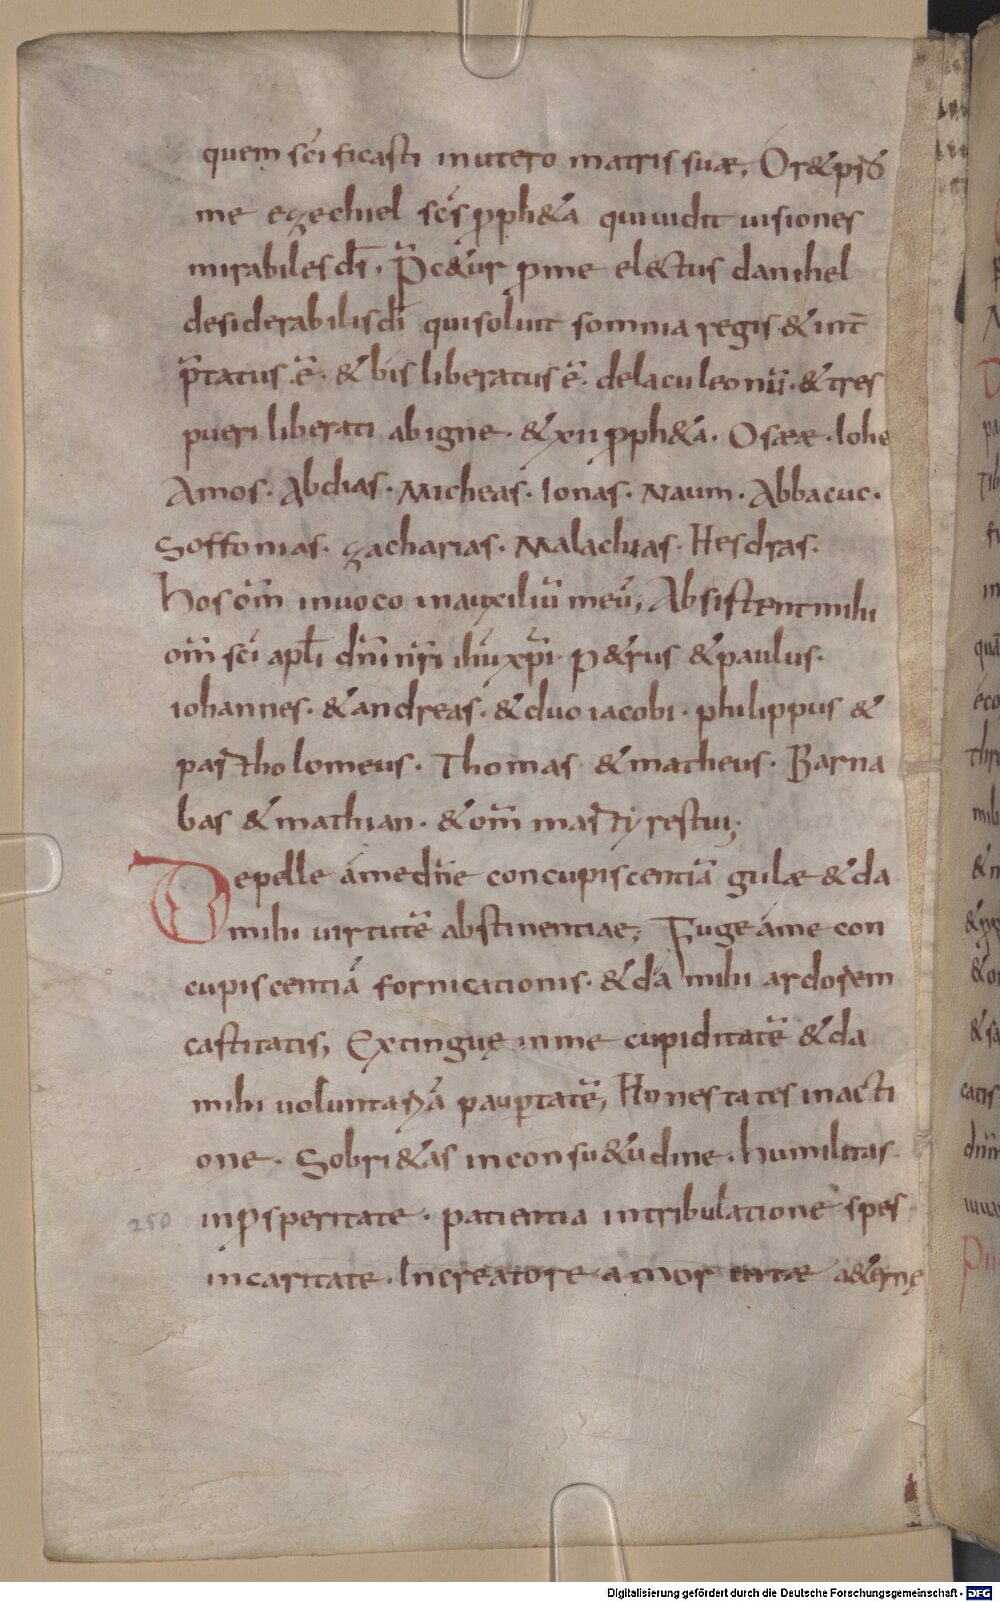 quem sc̄ificasti inutero matris suæ; Or&p̱s̄b
me ezechiel sc̄s ꝓph&a quiuidit uisiones
mirabiles dī. P̄c&ur ꝓme electus danihel
desiderabilis dī quisoluit somnia regis & int̄
p̄tatus .ē. & bis liberatus ē. delacu leonū. & tres
pueri liberati abigne. & xii ꝓph&a. Oseæ. Iohe
Amos. Abdias. Micheas. Ionas. Naum. Abbacuc.
Soffonias. zacharias. Malachias. Hesdras.
Hos om̄ inuoco inauxiliū meū; Absistent mihi
om̄ sc̄i apl̄i dn̄i nr̄i ihū xp̄i. P&rus & paulus.
iohannes. & andreas. & duo iacobi. philippus &
partholomeus. Thomas & matheus. Barna
bas & mathian. & om̄ martyres tui;
Depelle áme dn̄e concupiscentiā gulæ & da
mihi uirtutē abstinentiae; Fuge áme con
cupiscentiā fornicationis. & da mihi ardorem
castitatis; Extinguę inme cupiditatē & da
mihi uoluntariā paup̱tatē; Honestates inacti
one. Sobri&as inconsu&udine. humilitas
inꝓsperitate. patientia intribulatione spes
incaritate. Increatore amor uitæ a&ernę
250
Digitalisierung gefördert durch die Deutsche Forschungsgemeinschaft - DFG